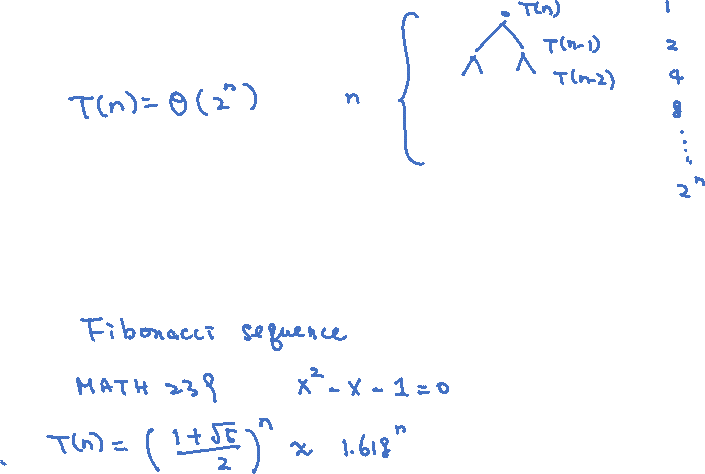 T(n) 1
T(n-1) 2
T(n-2) 4
T(n) = Θ(2^n) n 8
2^n
Fibonacci sequence
MATH 239 x^2 - x - 1 = 0
T(n) = ((1+√5)/2)^n ≈ 1.618^n